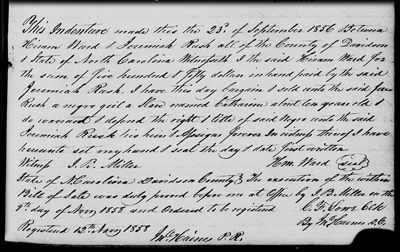 This Indenture made this the 23d. of September 1856 Between
Hiram Ward & Jeremiah Rush all of the County of Davidson
& State of North Carolina Witnesseth that the said Hiram Ward for
the sum of Five hundred & Fifty dollars in hand paid by the said
Jeremiah Rush. I have this day Bargain & sold unto the said Jere
Rush a negro girl a slave named Catharine about ten years old I
do warrant & defend the right & title of said Negro unto the said
Jeremiah Rush his heirs & Assigns forever In witness thereof I have
hereunto set my hand & seal the day & date first written
Witness J. B. Miller Hiram Ward Seal
State of N. Carolina Davidson County The execution of the within
Bill of Sale was duly proved before me at Office by J. B. Miller on the
day of Nov 1858 and Ordered to be registered C. F. Lowe Clk
Registered 12th Nov 1858 By
Haines P. R.